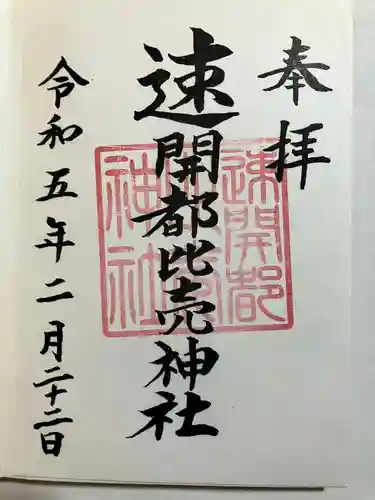 奉拝
速開都比売神社
令和五年二月二十二日
速開都
比売
神社